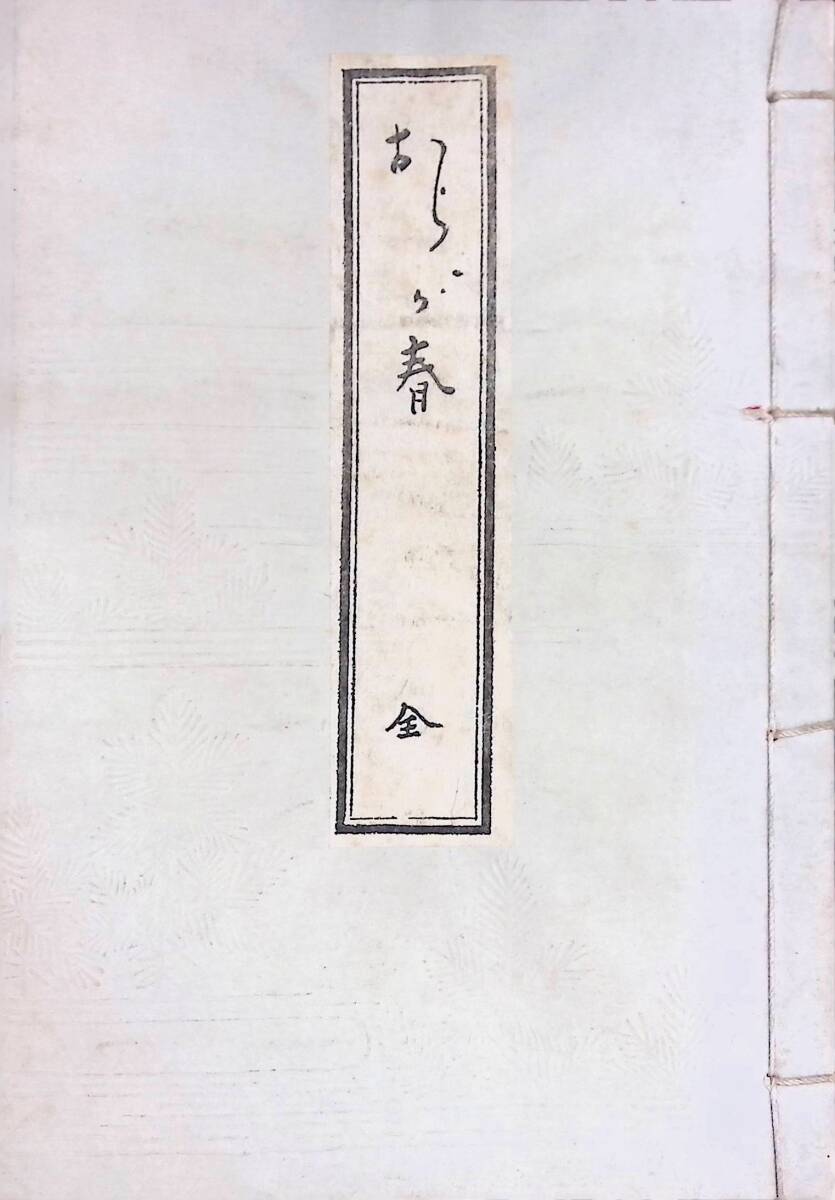 おらが春
全